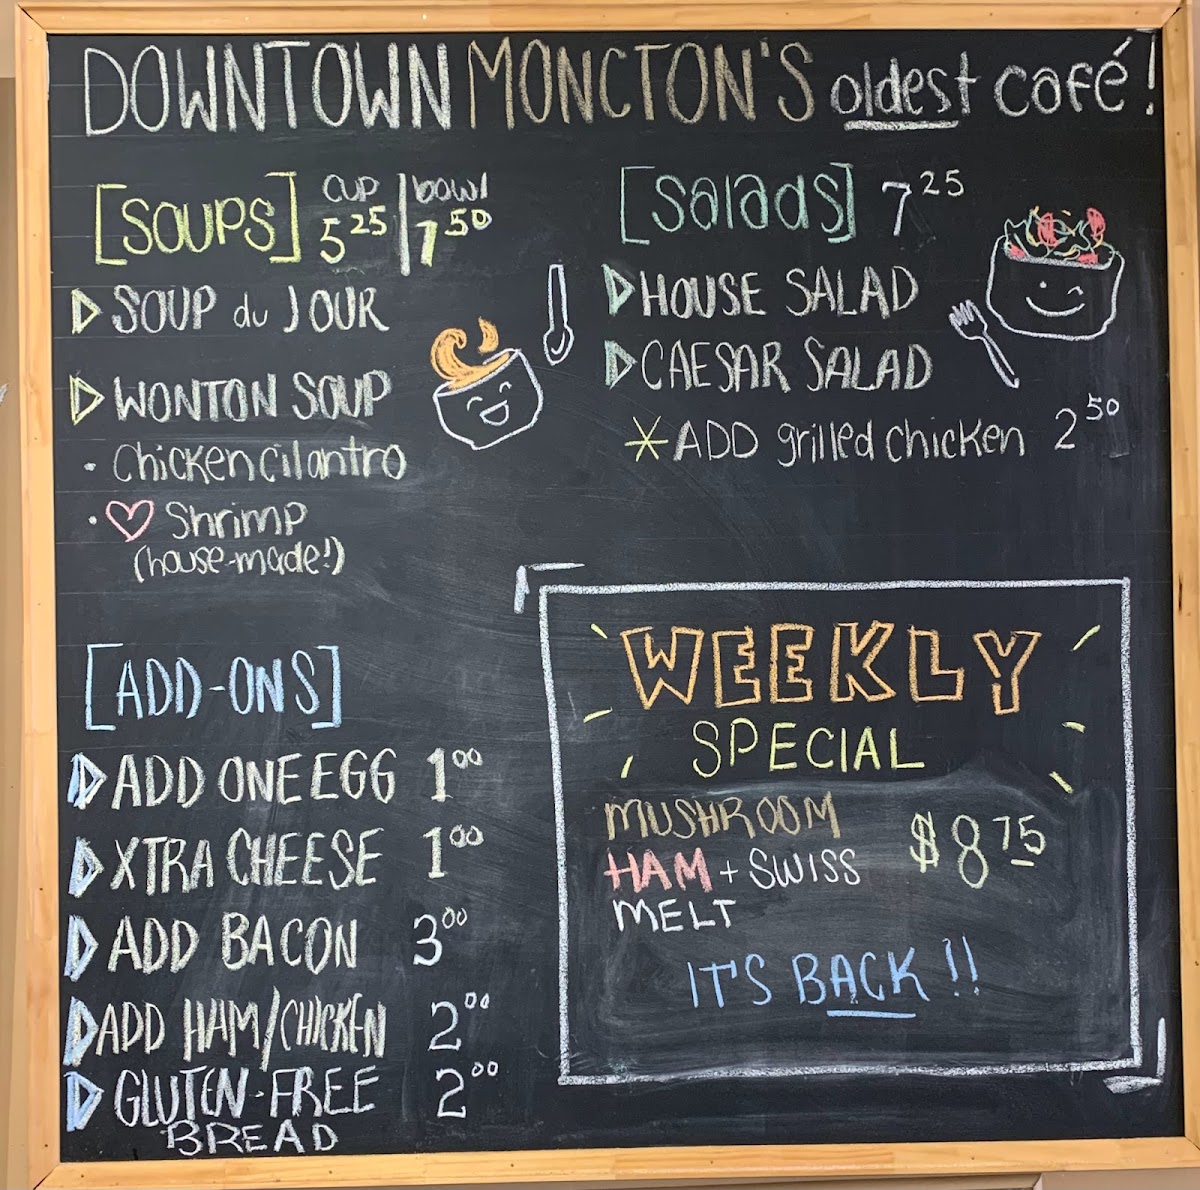 DOWNTOWN MONCTON'S oldest café!
[SOUPS] cup 5 25 | bowl 7 50
SOUP du JOUR
WONTON SOUP
• Chicken cilantro
• ♡ Shrimp
(house-made!)
[Salads] 7 25
HOUSE SALAD
CAESAR SALAD
* ADD grilled chicken 2 50
[ADD-ONS]
ADD ONE EGG 1 00
XTRA CHEESE 1 00
ADD BACON 3 00
ADD HAM/CHICKEN 2 00
GLUTEN-FREE 2 00
BREAD
WEEKLY
SPECIAL
MUSHROOM
HAM + SWISS $8 75
MELT
IT'S BACK!!